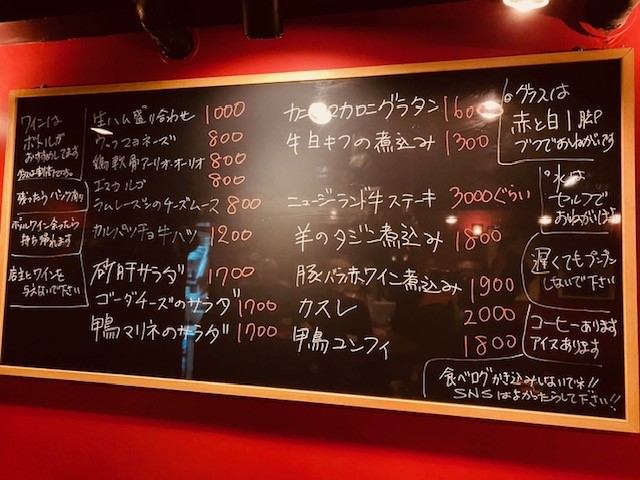 ワインは
ボトルが
おすすめしてます
残ったらパックあり
ボトルワイン余ったら
持ち帰れます
店主にワインを
与えないで下さい
生ハム盛り合わせ 1000
ウフマヨネーズ 800
鶏軟骨アーリオ・オーリオ 800
エスカルゴ 800
ラムレーズンのチーズムース 800
カルパッチョ牛ハツ 1200
砂肝サラダ 1700
ゴーダチーズのサラダ 1700
鴨マリネのサラダ 1700
カニマカロニグラタン 1600
牛白モツの煮込み 1300
ニュージランド牛ステーキ 3000ぐらい
羊のタジン煮込み 1800
豚バラ赤ワイン煮込み 1900
カスレ 2000
鴨コンフィ 1800
。グラスは
赤と白1脚
づつでおねがいです
。水は
セルフで
おねがいします
遅くてもプンプン
しないで下さい
コーヒーあります
アイスあります
食べログかき込みしないでネ!!
SNSはよかったらして下さい!!